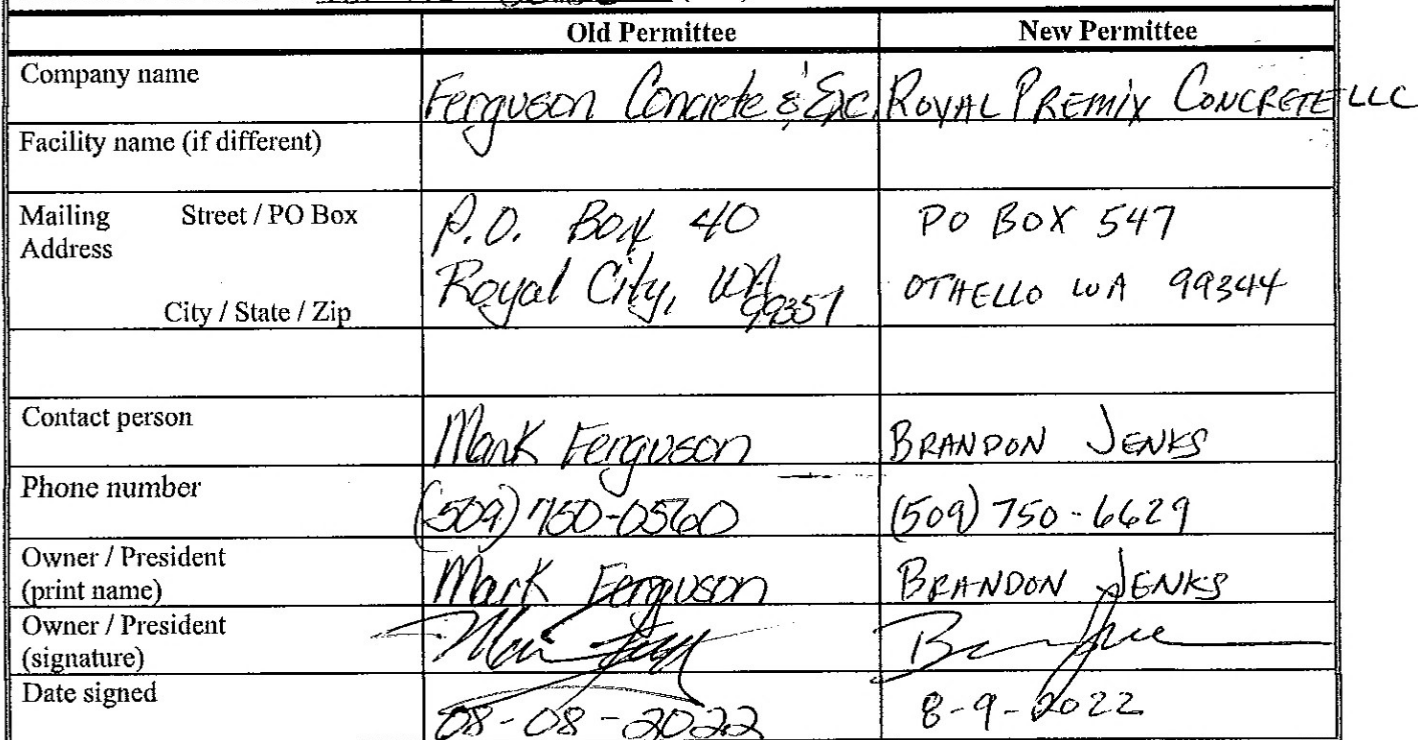 Old Permittee New Permittee
Company name Ferguson Concrete & Exc. ROYAL PREMIX CONCRETE LLC
Facility name (if different)
Mailing Street / PO Box P.O. Box 40 PO BOX 547
Address
Royal City, WA 99357 OTHELLO WA 99344
City / State / Zip
Contact person Mark Ferguson BRANDON JENKS
Phone number (509) 750-0560 (509) 750-6629
Owner / President
(print name) Mark Ferguson BRANDON JENKS
Owner / President
(signature)
Date signed 08-08-2022 8-9-2022